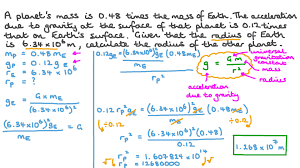 A planet's mass is 0.48 times the mass of Earth. The acceleration
due to gravity at the surface of that planet is 0.12 times
that on Earth's surface. Given that the radius of Earth
is 6.34×10⁶ m, calculate the radius of the other planet.
mₚ = 0.48 mE
gₚ = 0.12 gE
rE = 6.34 × 10⁶ m
rₚ = ?
gE = G × mE / (6.34×10⁶)²
(6.34×10⁶)² gE / mE = G
0.12 rₚ² gE = (6.34×10⁶)² gE (0.48 mE) / mE
0.12 rₚ² = (6.34×10⁶)² (0.48)
÷0.12
÷0.12
rₚ² = (6.34×10⁶)² (0.48) / 0.12
rₚ² = 1.607824 × 10¹⁴
rₚ = 12680000
g = Gm / r²
universal
gravitation
constant
mass
radius
acceleration
due to gravity
1.268 × 10⁷ m